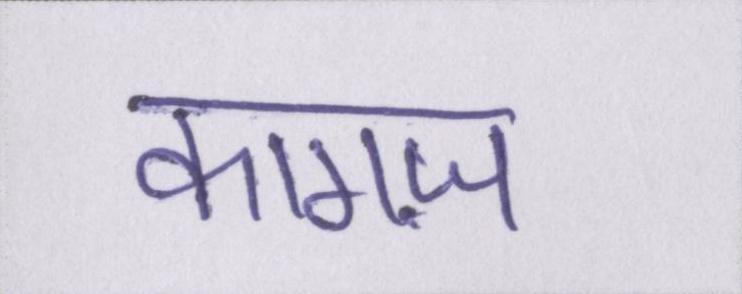 कागज़